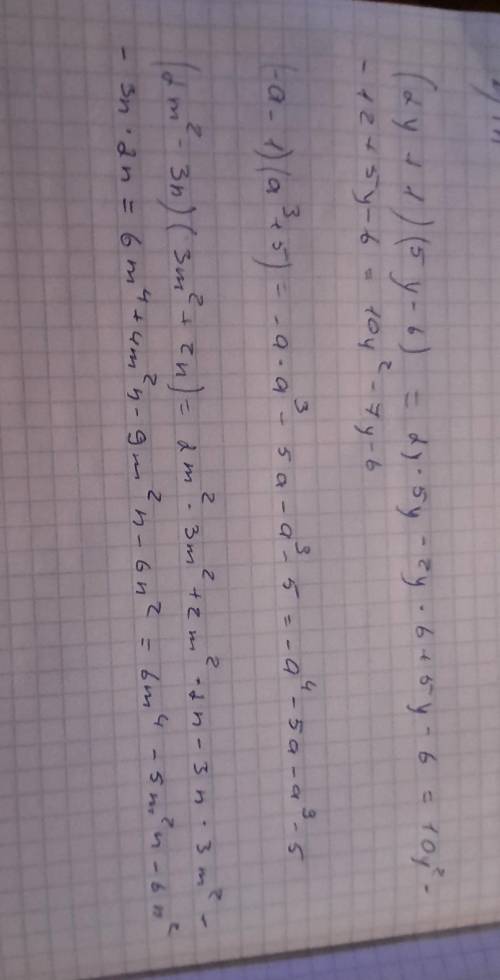 (2y+1)(5y-6) = 2y·5y-2y·6+5y-6 = 10y²-
-12+5y-6 = 10y²-7y-6
(-a-1)(a³+5) = -a·a³-5a-a³-5 = -a⁴-5a-a³-5
(2m²-3n)(3m²+2n) = 2m²·3m²+2m²·2n-3n·3m²-
-3n·2n = 6m⁴+4m²n-9m²n-6n² = 6m⁴-5m²n-6n²